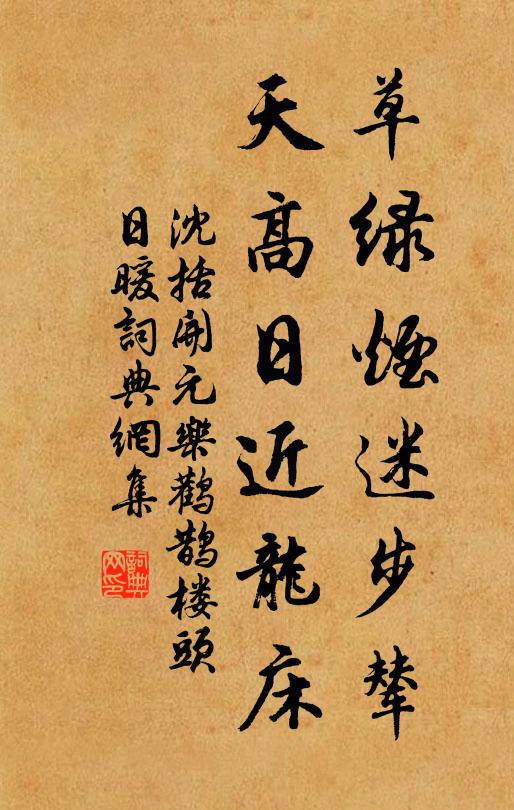 草绿煙迷步輦
天高日近龍床
沈括開元樂鸛鵲楼頭
日暖詞典網集
詞典网印